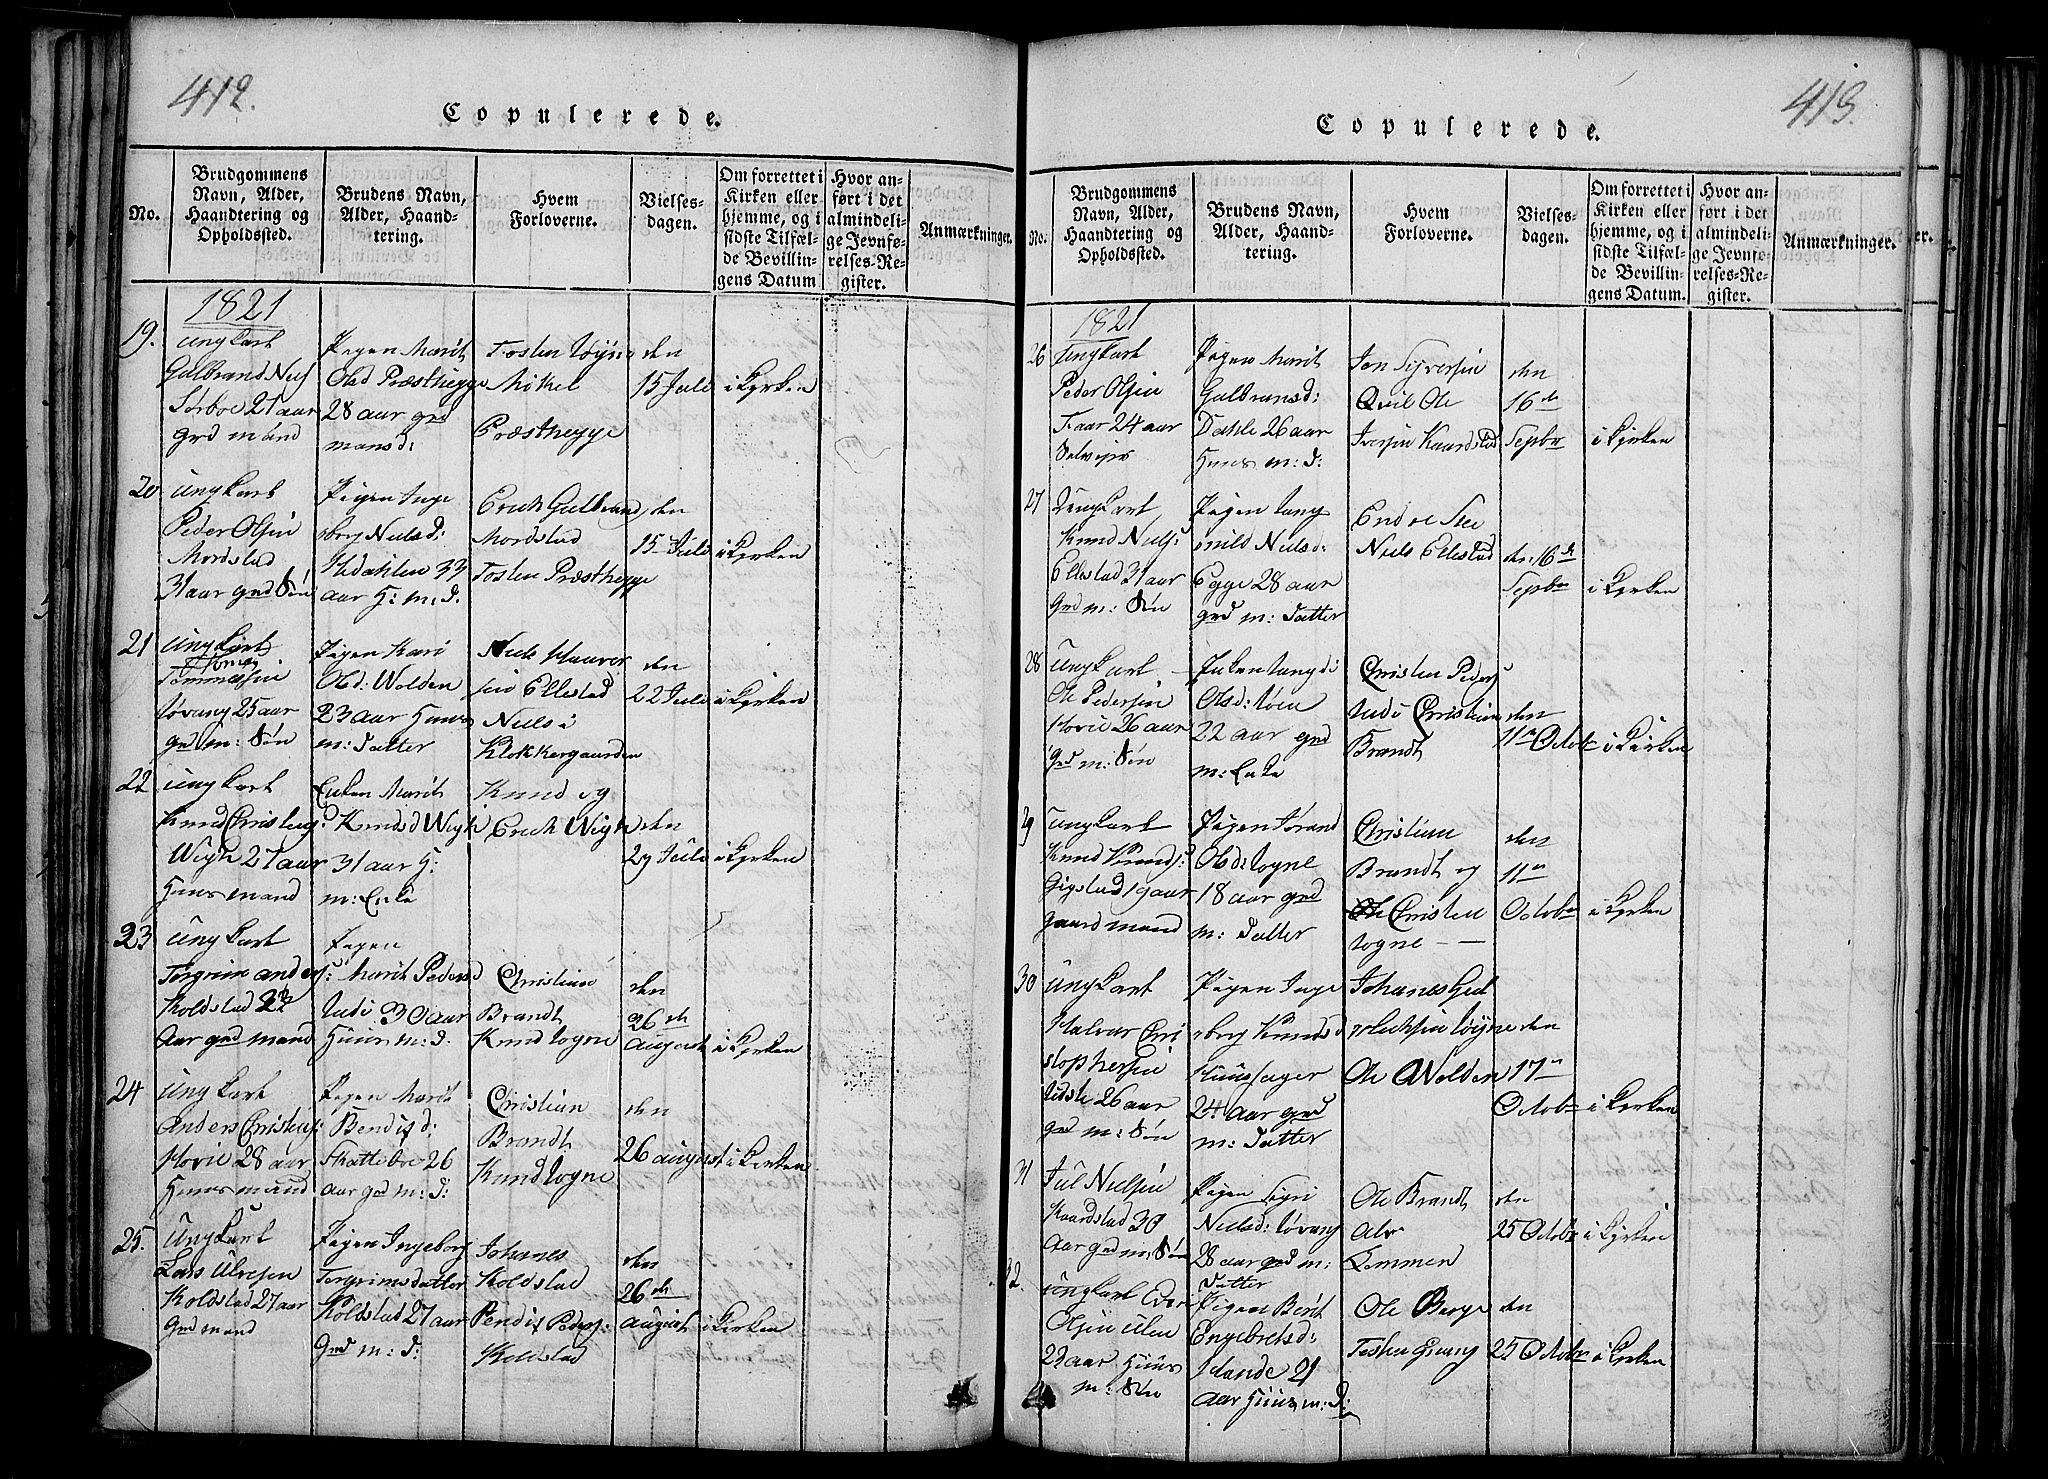 412.
Copulerede.
No.
Brudgommens Navn, Alder, Haandtering og Opholdssted.
Brudens Navn, Alder, Haandtering.
Hvem Forloverne.
Vielses-dagen.
Om forrettet i Kirken eller hjemme, og i sidste Tilfælde Bevillingens Datum
Hvor anført i det almindelige Jevnførelses-Register.
Anmærkninger.
1821
19. Ungkarl
Gulbrand Niels
Sørboe 21 aar
grd mand
Pigen Marit
Olsd Præsthegge
28 aar grd
mansd:
Tosten Tøyn
Mikel
Præsthegge
den
15 Juli
i Kyrken
20 Ungkarl
Peder Olsen
Mordstad
31 aar grd Søn
Pigen Inge
borg Nielsd:
Hedahlen 33
aar H: m: d.
Erich Gulbrand
Mordstad
Tosten Præsthegge
den
15 Juli
i Kyrken
21 Ungkarl
Tommessen
Løvang 25 aar
grd m: Søn
Pigen Kari
Olsd: Wolden
23 aar Huus
m: Datter
Niels Haaver
sen Ellestad
Niels i
Klokkergaarden
den
22 Juli
i Kyrken
22 Ungkarl
Knud Christens:
Wigh 27 aar
Huusmand
Enken Marit
Knudsd Wigh
31 aar H:
m: Enke
Knud og
Erich Wigh
den
29 Juli
i Kyrken
23 Ungkarl
Torgrim anders:
Koldstad 22
Aar grd mand
Pigen
Marit Pedersd
Lude 30 aar
Huus m: d.
Christian
Brandt
Knud Logne
den
26 de
august
i Kyrken
24 Ungkarl
Anders Christens:
Hovie 28 aar
Huusmand
Pigen Marit
Bendixd:
Skatteboe 26
aar grd m: d:
Christian
Brandt
Knud Logne
den
26 august
i Kyrken
25. Ungkarl
Lars Ulvesen
Koldstad 27 aar
Grd mand
Pigen Ingeborg
Torgrimsdatter
Koldstad 27 aar
Grd m: d:
Johanes
Koldstad
Pendix Peders:
Koldstad
den
26 de
august
i Kirken
413.
Copulerede.
No.
Brudgommens Navn, Alder, Haandtering og Opholdssted.
Brudens Navn, Alder, Haandtering.
Hvem Forloverne.
Vielses-dagen.
Om forrettet i Kirken eller hjemme, og i sidste Tilfælde Bevillingens Datum.
Hvor anført i det almindelige Jevnførelses-Register.
Anmærkninger.
1821
26 Ungkarl
Peder Olsen
Faar 24 aar
Selveier
Pigen Marit
Gulbransd:
Dahle 26 aar
Huus m: d:
Jon Syversen
Qvil Ole
Iversen Kaardstad
den
16 de
Sepbr
i Kyrken
27 Ungkarl
Knud Niels:
Ellestad 31 aar
Grd m: Søn
Pigen Lang
inild Nielsd:
Egge 28 aar
grd m: Datter
Endre Lee
Niels Ellestad
den 16 de
Sepbr
i Kyrken
28 Ungkarl
Ole Pedersen
Hovie 26 aar
Grd m: Søn
Enken
Olsd: Løen
22 aar grd
m: Enke
Christen Peders
Lude Christian
Brandt
den
11te Octob
i Kirken
29 Ungkarl
Knud Knuds:
Gigstad 19 aar
gaardmand
Pigen Jørand
Olsd: Logne
18 aar grd
m: Datter
Christian
Brandt og
Ole Christen
Logne
den
11te
Octobr
i Kyrken
30 Ungkarl
Halvar Chri
stophersen
Udste 26 aar
grd m: Søn
Pigen Inge
borg Knudsd
Huusager
24 aar grd
m: Datter
Johanes Gul
Løyne
Ole Wolden
den
17te
Octobr
i Kyrken
31 Jul Nielsen
Kaardstad 30
Aar grd m: Søn
Pigen Sigri
Nielsd: Løvang
28 aar grd m:
Datter
Ole Brandt
Alv
Lommen
den
25 Octobr
i Kyrken
32. Ungkarl Even
Olsen Ulen
23 aar Huus
m: Søn
Pigen Berit
Engebretsd:
Hande 21
aar Huus m: d:
Ole Berge
den
25 Octobr
i Kyrken